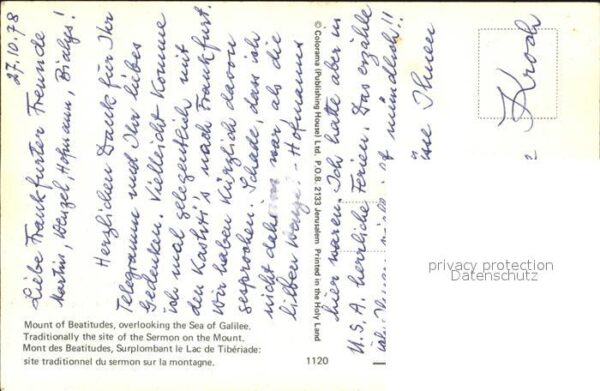 27.10.78
Liebe Frankfurter Freunde
Martins, Wenzel, Hofmann, Bialys!
Herzlichen Dank für Ihr
Telegramm und Ihr liebes
Gedenken. Vielleicht komme
ich mal gelegentlich mit
den nach Frankfurt.
Wir haben kürzlich davon
gesprochen. Schade, dass ich
nicht daheim war als die
lieben - Hofmanns
hier waren. Ich hatte aber in
U.S.A. herrliche Ferien. Das erzähle
ich mündlich!!
Ihnen
Kroch
© Colorama (Publishing House) Ltd. P.O.B. 2133 Jerusalem Printed in the Holy Land
Mount of Beatitudes, overlooking the Sea of Galilee.
Traditionally the site of the Sermon on the Mount.
Mont des Beatitudes, Surplombant le Lac de Tibériade:
site traditionnel du sermon sur la montagne.
1120
privacy protection
Datenschutz